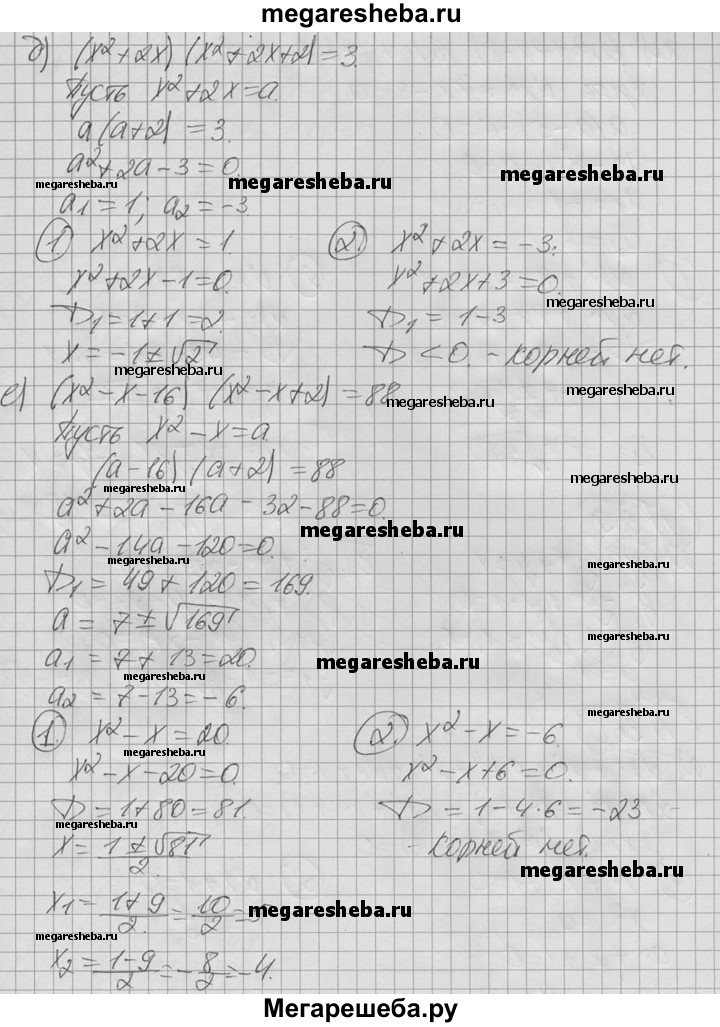 megaresheba.ru
д) (x²+2x) (x²+2x+2) = 3.
Пусть x²+2x=a.
a(a+2) = 3.
a²+2a-3=0.
megaresheba.ru megaresheba.ru megaresheba.ru
a₁=1; a₂=-3.
① x²+2x=1.
x²+2x-1=0.
D₁=1+1=2.
x=-1±√2
② x²+2x=-3.
x²+2x+3=0.
megaresheba.ru
D₁=1-3
D<0. - корней нет.
megaresheba.ru
е) (x²-x-16) (x²-x+2) = 88
megaresheba.ru megaresheba.ru
Пусть x²-x=a.
(a-16)(a+2)=88
megaresheba.ru megaresheba.ru
a²+2a-16a-32-88=0.
megaresheba.ru
a²-14a-120=0.
megaresheba.ru megaresheba.ru
D₁=49+120=169.
a=7±√169
megaresheba.ru
a₁=7+13=20.
megaresheba.ru
a₂=7-13=-6.
megaresheba.ru
① x²-x=20.
megaresheba.ru
x²-x-20=0.
D=1+80=81.
megaresheba.ru
x=(1±√81)/2.
② x²-x=-6.
x²-x+6=0.
D=1-4·6=-23
- корней нет.
megaresheba.ru
x₁=(1+9)/2.=10/2=
megaresheba.ru
megaresheba.ru
x₂=(1-9)/2=-8/2=-4.
megaresheba.ru
Мегарешеба.ру